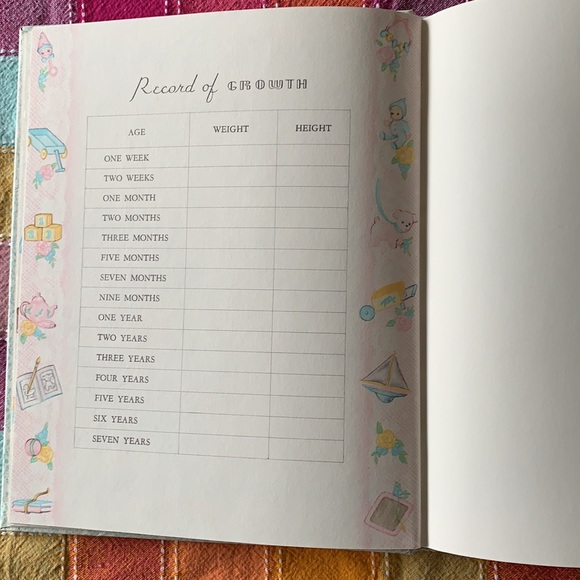 Record of GROWTH
AGE WEIGHT HEIGHT
ONE WEEK
TWO WEEKS
ONE MONTH
TWO MONTHS
THREE MONTHS
FIVE MONTHS
SEVEN MONTHS
NINE MONTHS
ONE YEAR
TWO YEARS
THREE YEARS
FOUR YEARS
FIVE YEARS
SIX YEARS
SEVEN YEARS